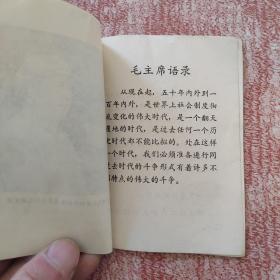 毛主席语录
从现在起，五十年内外到一
百年内外，是世界上社会制度彻
底变化的伟大时代，是一个翻天
覆地的时代，是过去任何一个历
史时代都不能比拟的。处在这样
一个时代，我们必须准备进行同
过去时代的斗争形式有着许多不
同特点的伟大的斗争。